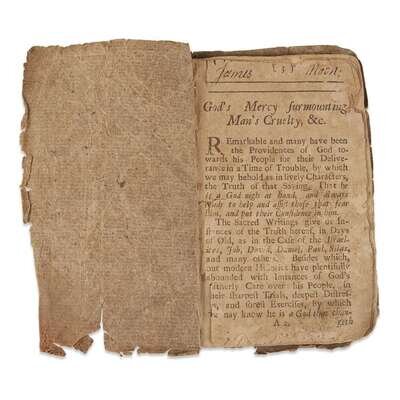 James (3) Moon
God's Mercy surmounting
Man's Cruelty, &c.
REmarkable and many have been
the Providences of God to-
wards his People for their Delive-
rance in a Time of Trouble, by which
we may behold as in lively Characters,
the Truth of that Saying, That he
is a God nigh at hand, and always
ready to help and assist those that fear
him, and put their Confidence in him.
The Sacred Writings give us In-
stances of the Truth hereof, in Days
of Old, as in the Case of the Israel-
ites, Job, David, Daniel, Paul, Silas,
and many others. Besides which,
our modern Histories have plentifully
abounded with Instances of God's
Fatherly Care over his People, in
their sharpest Trials, deepest Distres-
ses, and sorest Exercises, by which
we may know he is a God that chan-
A 2 geth